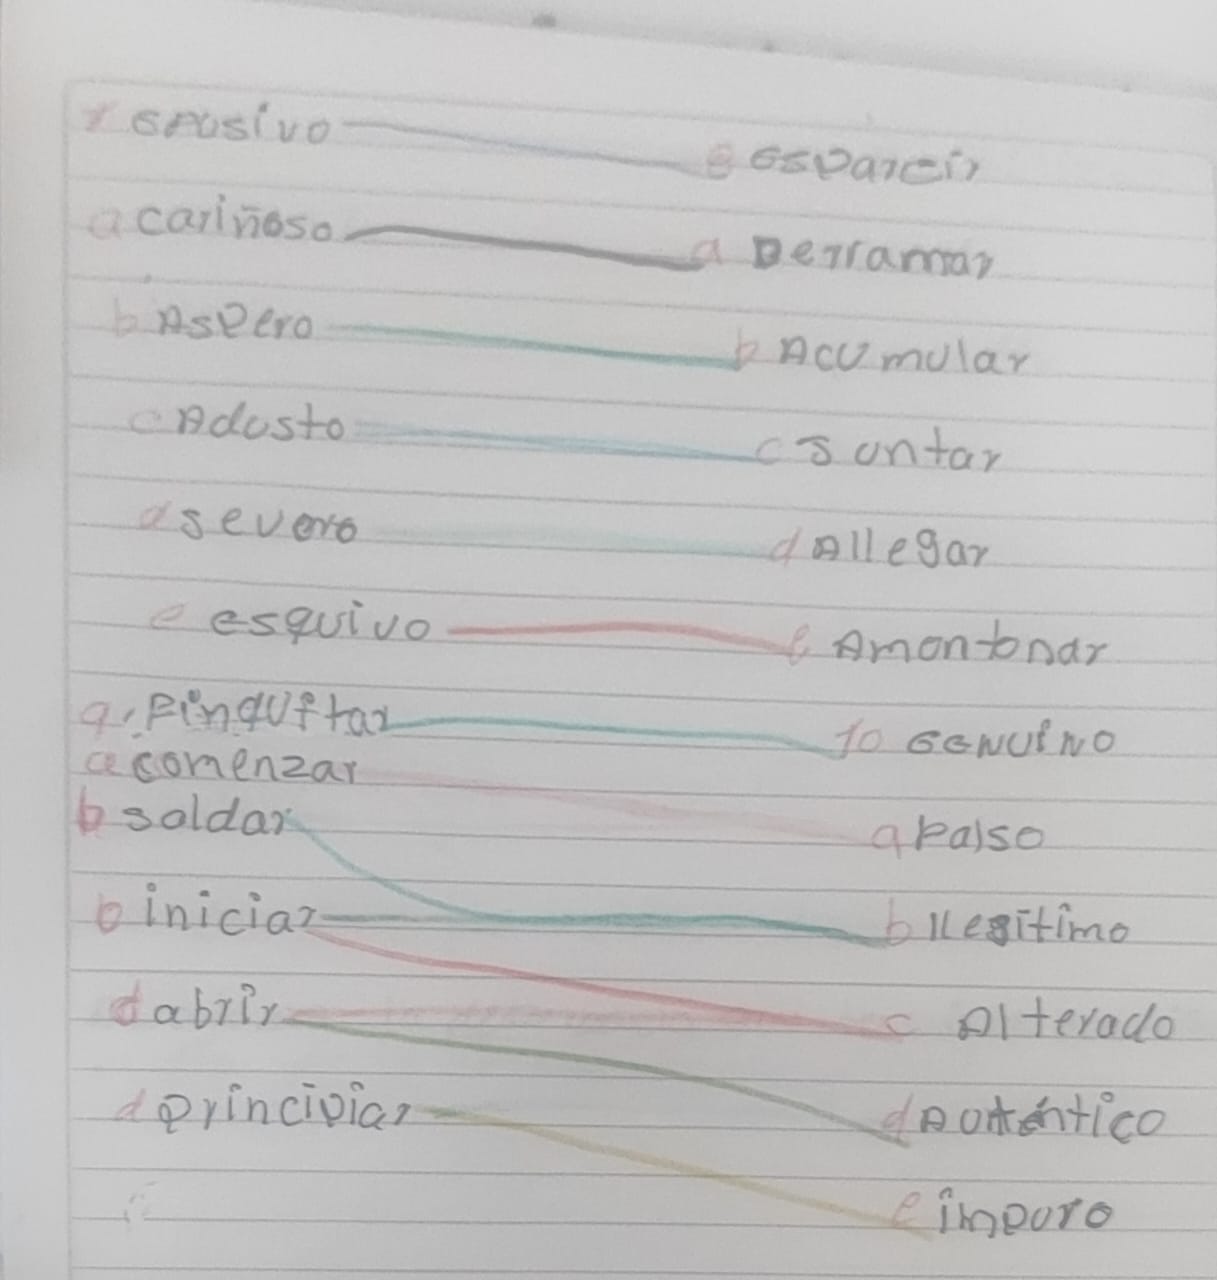 7 efusivo 8 esparcir
a cariñoso a Derramar
b Aspero b Acumular
c Adusto c Juntar
d severo d Allegar
e esquivo e Amontonar
9. Finquitar 10 GeNUiNO
a comenzar a Falso
b saldar
b iniciar b Ilegítimo
d abrir c Alterado
d principiar d Auténtico
e impuro